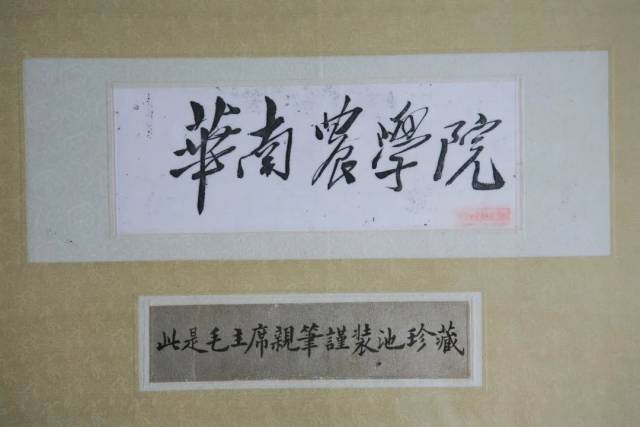 華南農學院
此是毛主席親筆謹裝池珍藏